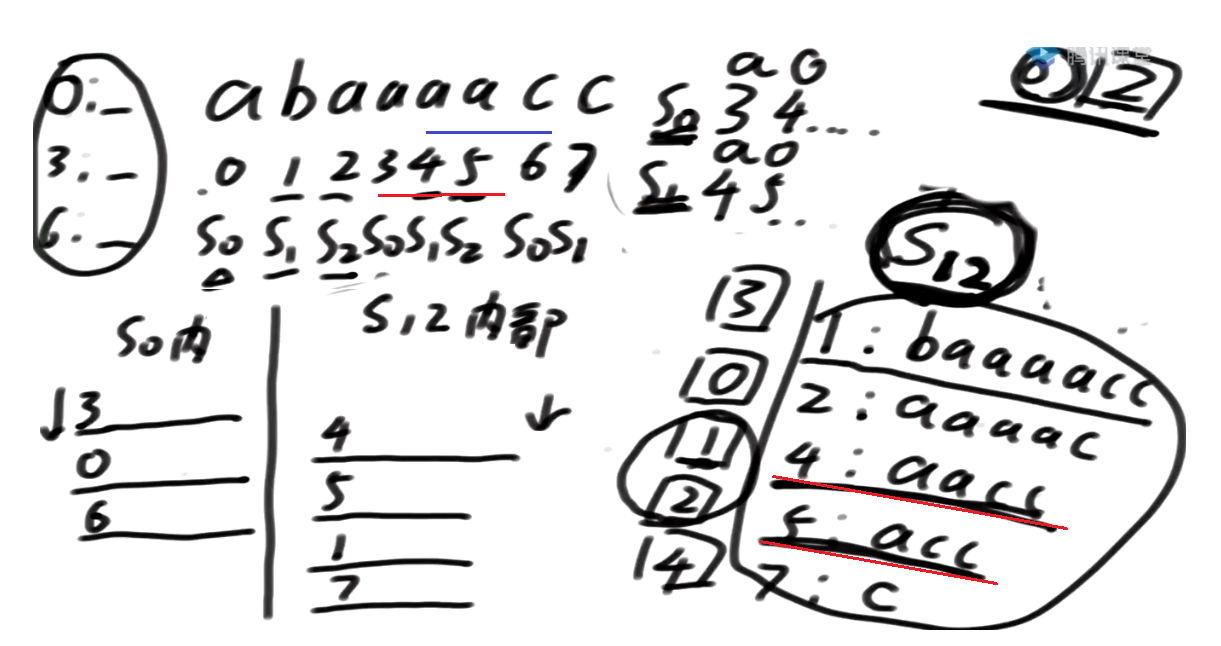 0:_ abaaaacc
3._ 0 1 2 3 4 5 6 7
6:_ S0 S1 S2 S0 S1 S2 S0 S1
a 0
S0 3 4....
a 0
S1 4 5...
腾讯课堂
2
S0内
↓3
0
6
S12内部
4 ↓
5
1
7
S12
3
0
1
2
4
1:baaaacc
2:aaaac
4:aacc
5:acc
7:c